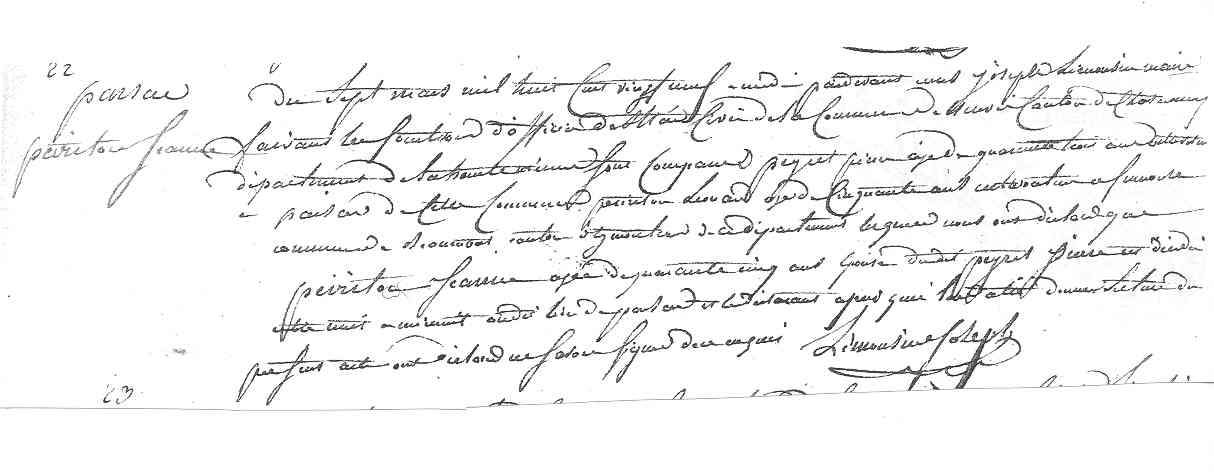 22
parsac
peiriton Jeanne
Du Sept mars mil huit Cent vingt neuf a midi pardevant nous joseph Limousin maire
faisant les fonctions d'officier de l'état Civil de la Commune de Canton de
département de la haute vienne Sont Comparus peyret pierre âgé de quarante trois ans
a parsac de Cette Commune peiriton Léonard âgé de Cinquante ans cultivateur
commune de canton d'eymoutier de ce département lesquels nous ont déclaré que
peiriton Jeanne agée de quarante cinq ans Epouse dudit peyret pierre est décédé
cette nuit a minuit audit lieu de parsac et les déclarants après qu'il a été donné lecture du
présent acte ont déclaré ne Savoir Signer de ce enquis Limousin Joseph
23